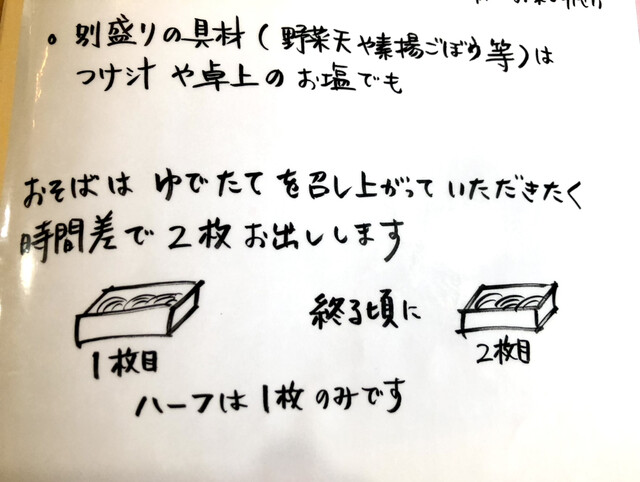 。別盛りの具材(野菜天や素揚ごぼう等)は
つけ汁や卓上のお塩でも
おそばはゆでたてを召し上がっていただきたく
時間差で2枚お出しします
終る頃に
1枚目
2枚目
ハーフは1枚のみです